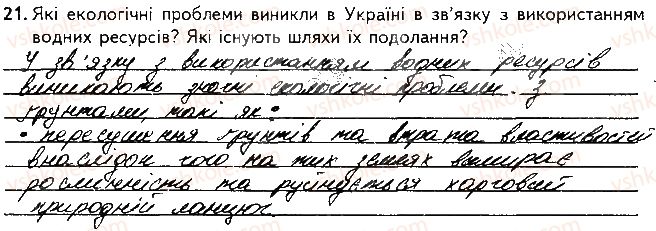 21. Які екологічні проблеми виникли в Україні в зв'язку з використанням
водних ресурсів? Які існують шляхи їх подолання?
У зв'язку з використанням водних ресурсів
виникають значні екологічні проблеми. З
ґрунтами, такі як:
• пересушення ґрунтів та втрата властивостей
внаслідок чого на тих землях вимирає
рослинність та руйнується харчовий
природній ланцюг.